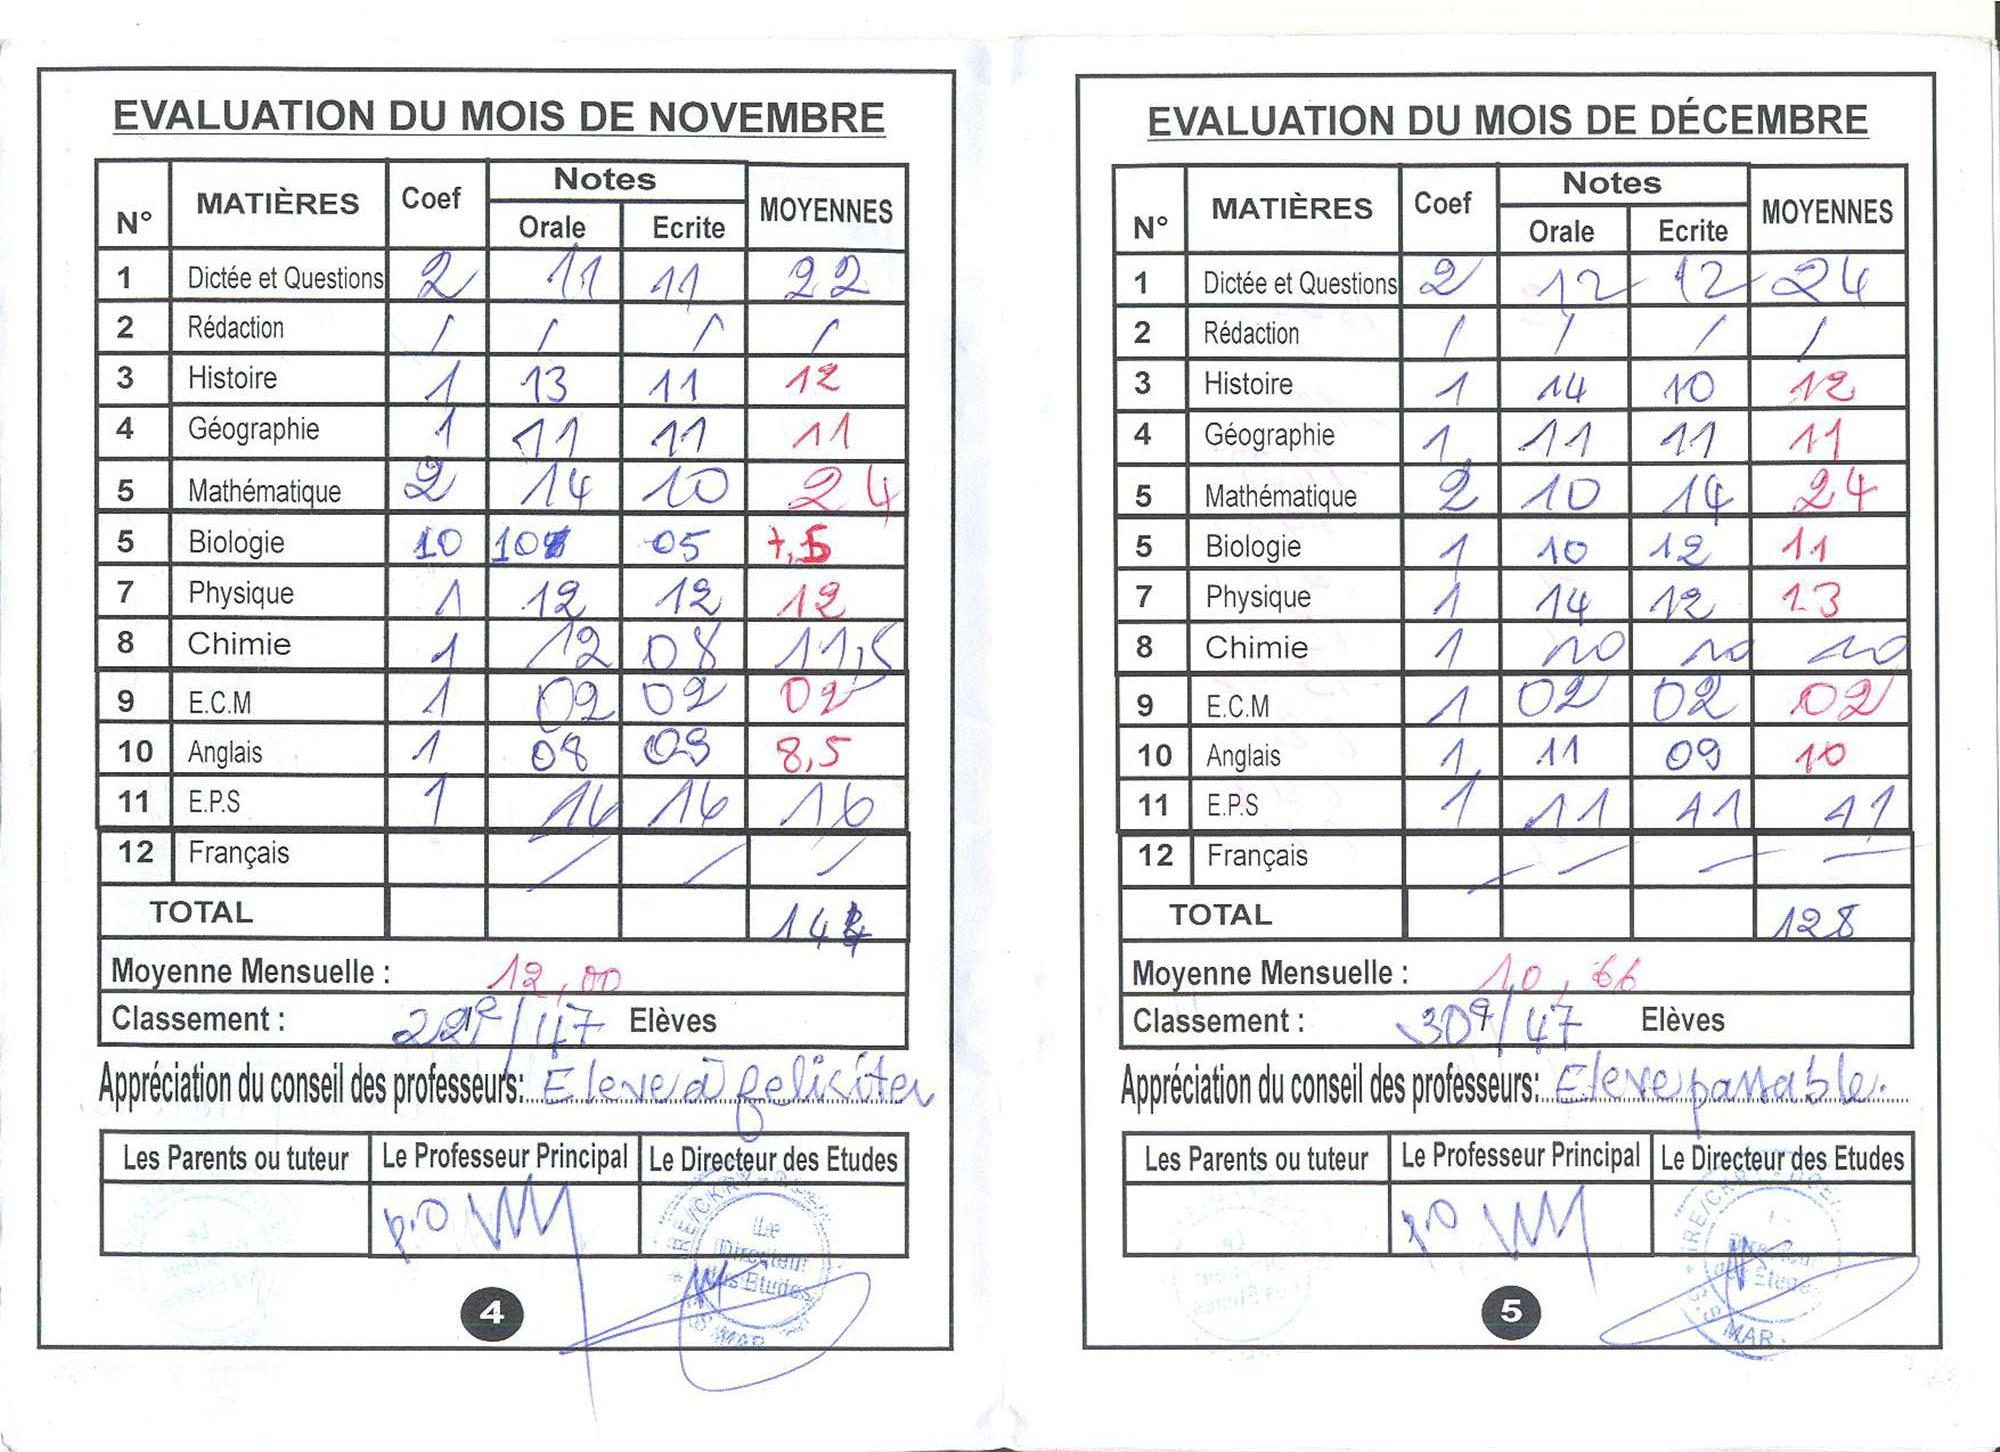 EVALUATION DU MOIS DE NOVEMBRE
N° MATIÈRES Coef Notes MOYENNES
Orale Ecrite
1 Dictée et Questions 2 11 11 22
2 Rédaction / / / /
3 Histoire 1 13 11 12
4 Géographie 1 11 11 11
5 Mathématique 2 14 10 24
5 Biologie 10 10 05 7,5
7 Physique 1 12 12 12
8 Chimie 1 12 08 11,5
9 E.C.M 1 02 02 02
10 Anglais 1 08 09 8,5
11 E.P.S 1 16 16 16
12 Français / / /
TOTAL 144
Moyenne Mensuelle : 12,00
Classement : 22e/47 Elèves
Appréciation du conseil des professeurs: Eleve à feliciter
Les Parents ou tuteur Le Professeur Principal Le Directeur des Etudes
p.o
Le
Directeur
des Etudes
4
EVALUATION DU MOIS DE DÉCEMBRE
N° MATIÈRES Coef Notes MOYENNES
Orale Ecrite
1 Dictée et Questions 2 12 12 24
2 Rédaction / / / /
3 Histoire 1 14 10 12
4 Géographie 1 11 11 11
5 Mathématique 2 10 14 24
5 Biologie 1 10 12 11
7 Physique 1 14 12 13
8 Chimie 1 10 10 10
9 E.C.M 1 02 02 02
10 Anglais 1 11 09 10
11 E.P.S 1 11 11 11
12 Français / / /
TOTAL 128
Moyenne Mensuelle : 10,66
Classement : 30e/47 Elèves
Appréciation du conseil des professeurs: Eleve passable.
Les Parents ou tuteur Le Professeur Principal Le Directeur des Etudes
p.o
Le
Directeur
des Etudes
5